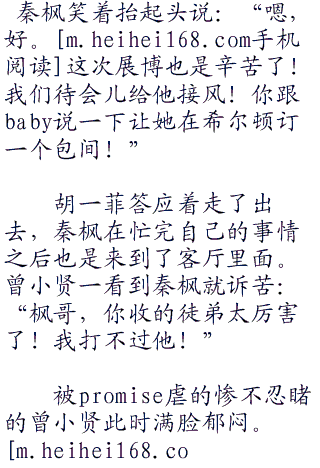 秦枫笑着抬起头说：“嗯，
好。[m.heihei168.com手机
阅读]这次展博也是辛苦了！
我们待会儿给他接风！你跟
baby说一下让她在希尔顿订
一个包间！”
胡一菲答应着走了出
去，秦枫在忙完自己的事情
之后也是来到了客厅里面。
曾小贤一看到秦枫就诉苦：
“枫哥，你收的徒弟太厉害
了！我打不过他！”
被promise虐的惨不忍睹
的曾小贤此时满脸郁闷。
[m.heihei168.co